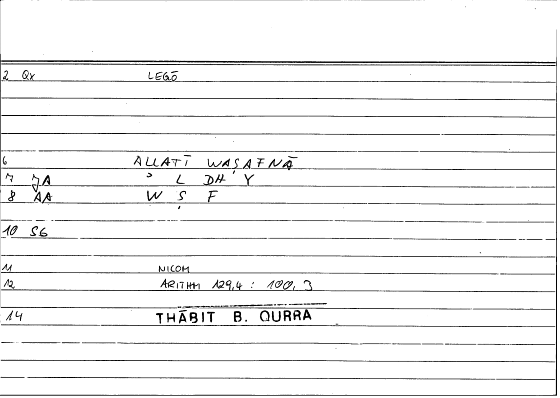 2 Qx LEGŌ
6 ALLATĪ WAṢAFNĀ
7 JA ʾ L DH Y
8 AA W Ṣ F
10 SG
11 NICOM
12 ARITHM 129,4 : 100, 3
14 THĀBIT B. QURRA